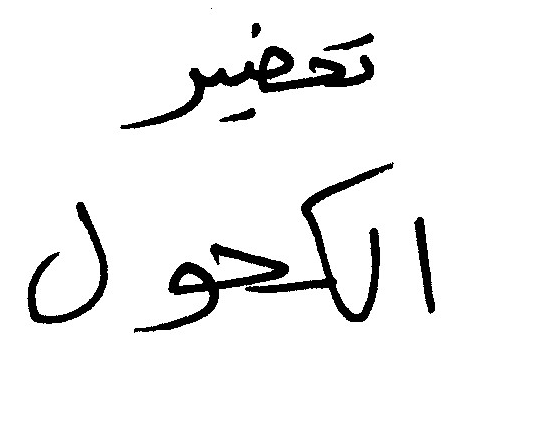 تحضير
الكحول